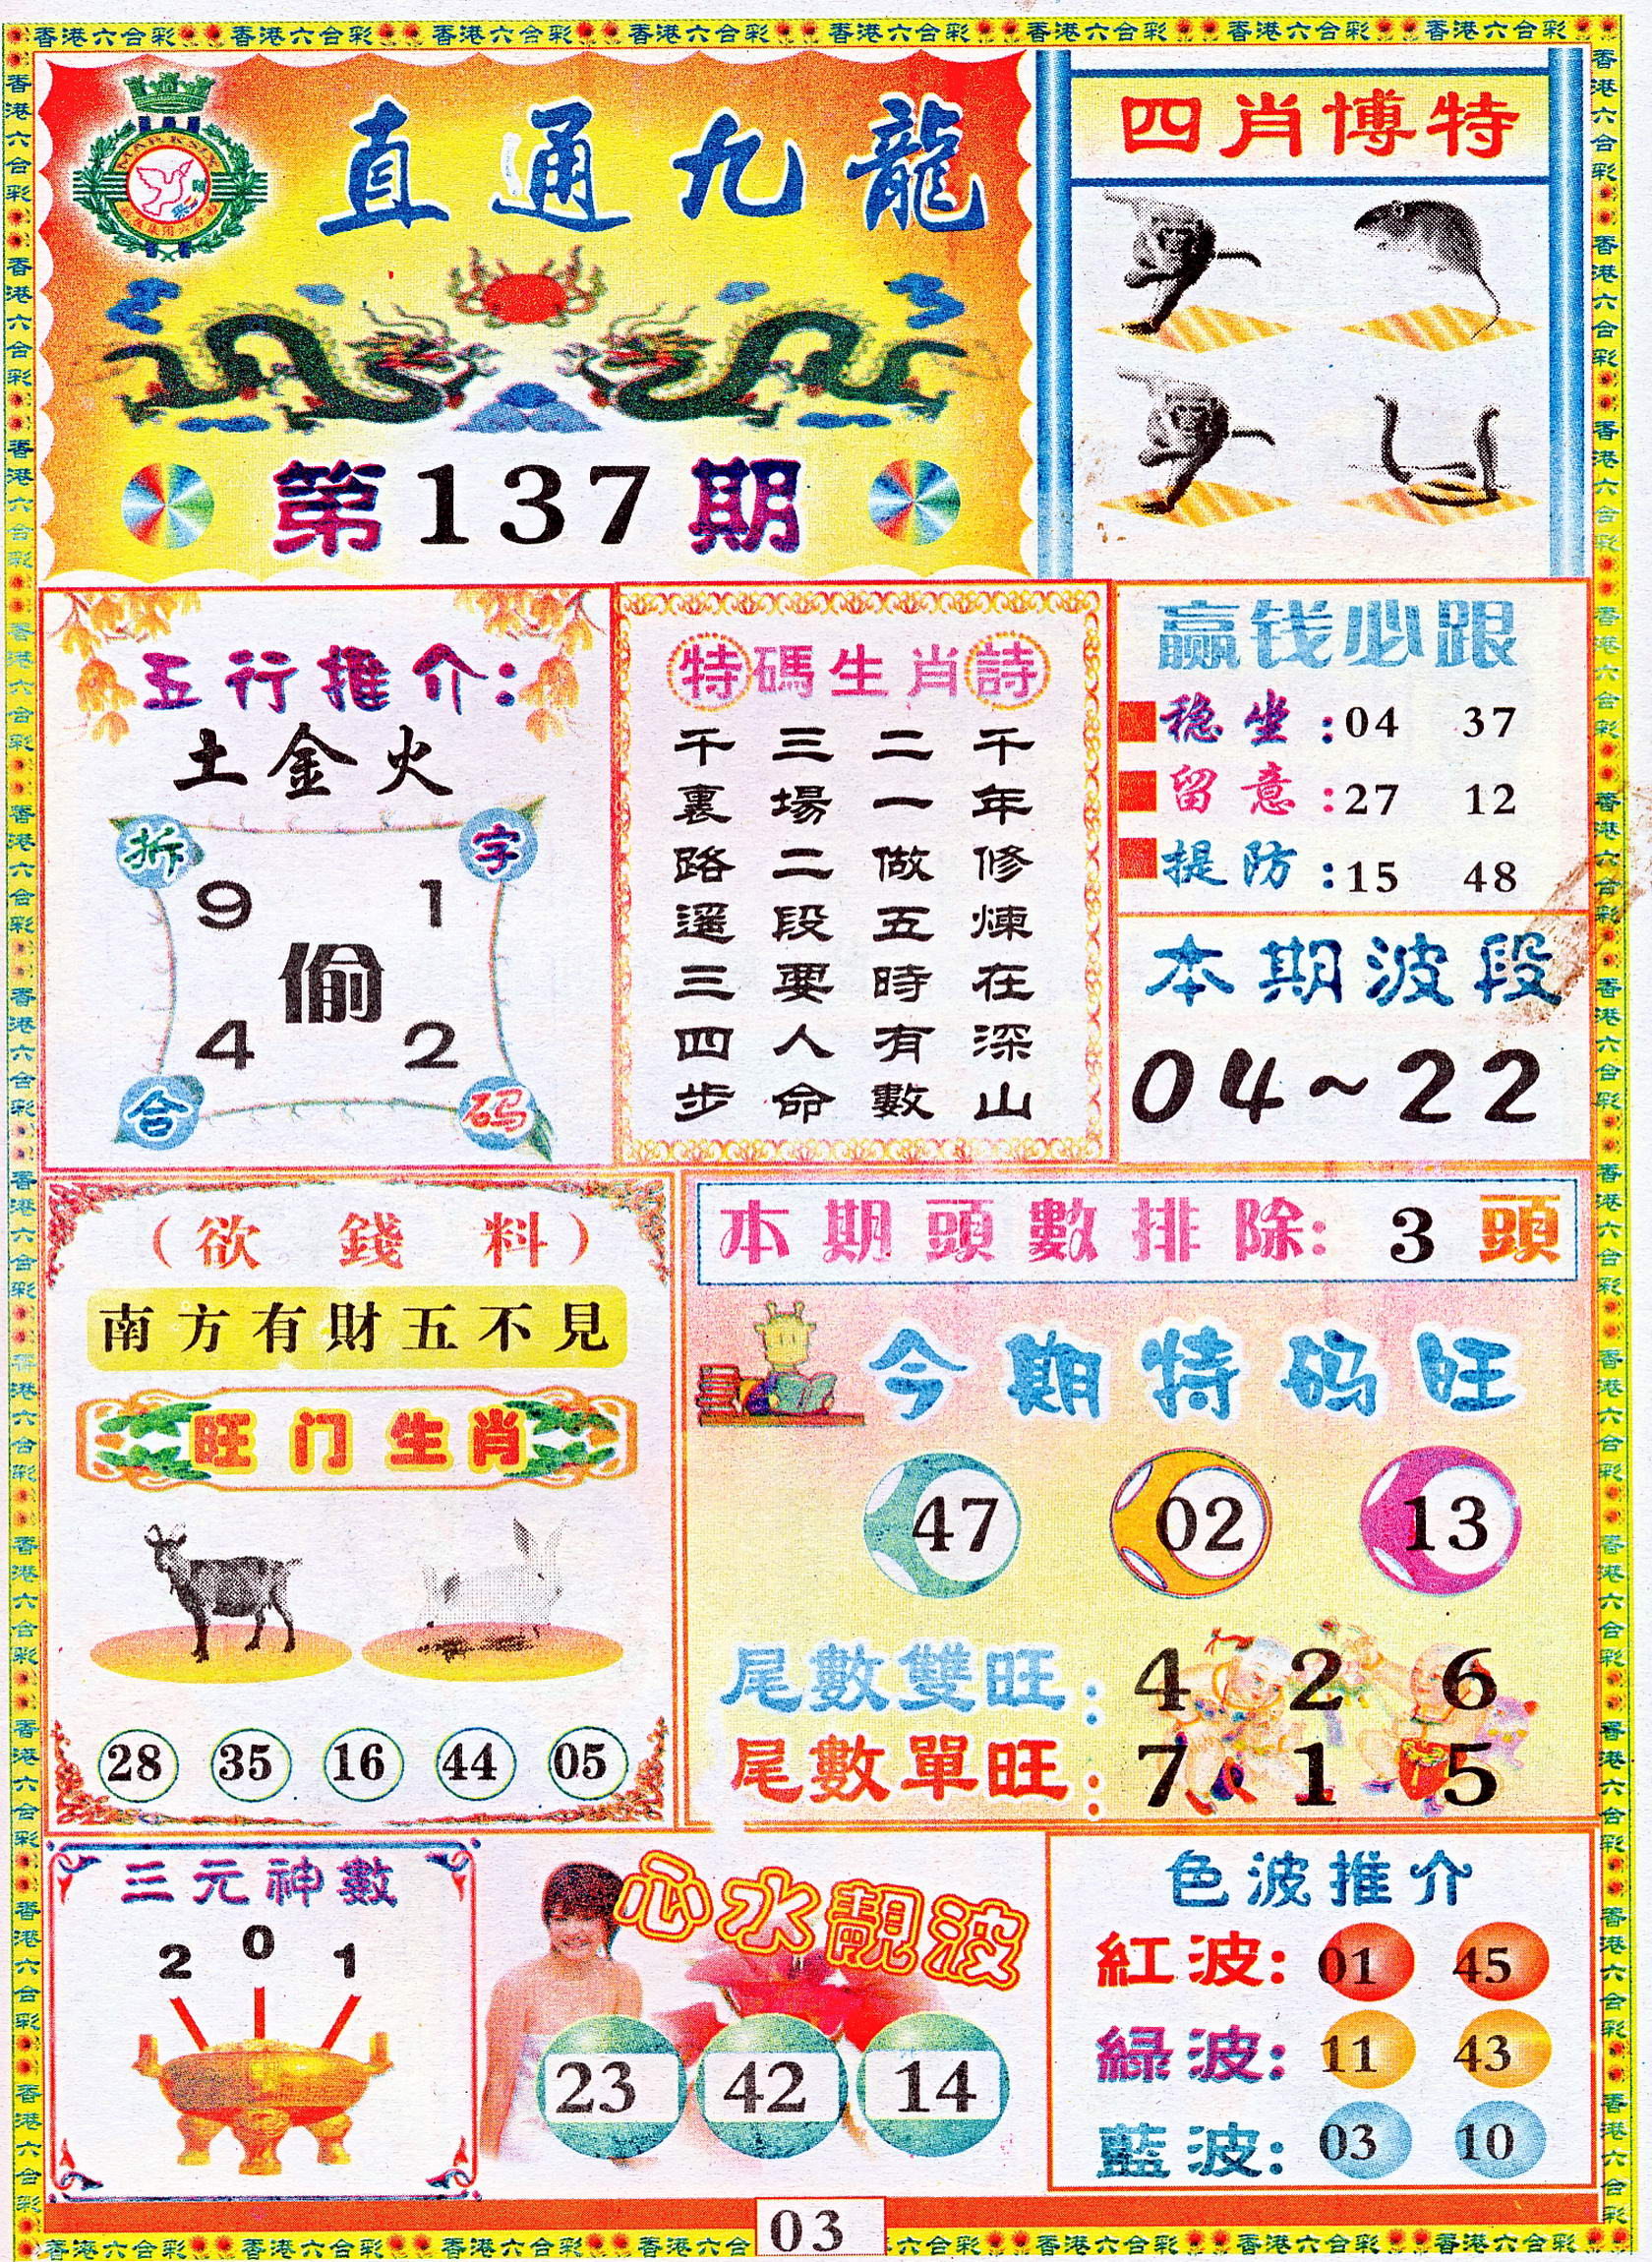 香港六合彩 香港六合彩 香港六合彩 香港六合彩 香港六合彩 香港六合彩 香港六合彩 香港六合彩
MARKSIX
直通九龍
第137期
四肖博特
五行推介:
土金火
拆字
9 1
偷
4 2
合码
特碼生肖詩
千年修煉在深山
二一做五時有數
三場二段要人命
千裏路遥三四步
赢钱必跟
稳坐:04 37
留意:27 12
提防:15 48
本期波段
04~22
(欲錢料)
南方有財五不見
旺门生肖
28 35 16 44 05
本期頭數排除: 3 頭
今期特码旺
47 02 13
尾數雙旺: 4 2 6
尾數單旺: 7 1 5
三元神數
2 0 1
心水靚波
23 42 14
色波推介
紅波: 01 45
緑波: 11 43
藍波: 03 10
03